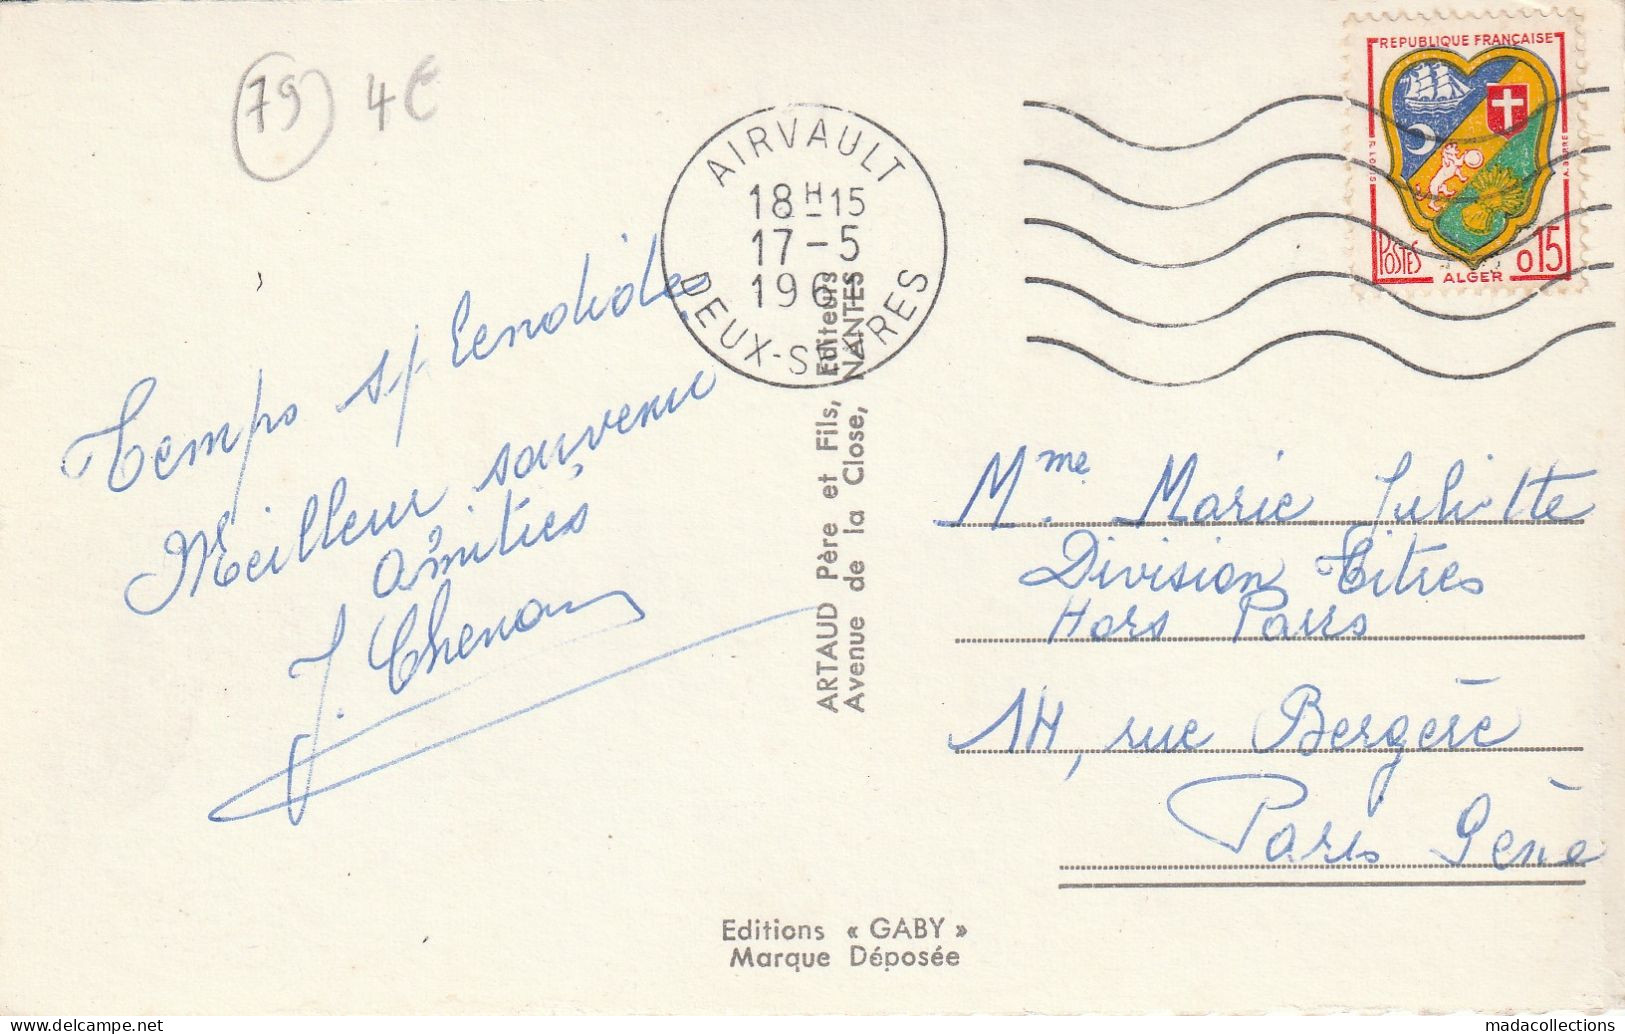 79 4€
AIRVAULT
18H15
17-5
196
DEUX-SEVRES
REPUBLIQUE FRANÇAISE
R. LOUIS
A. BARRE
POSTES
ALGER
0,15
Temps splendide
Meilleur souvenir
amitiés
ARTAUD Père et Fils, Editeurs
Avenue de la Close, NANTES
Mme. Marie Juliette
Division Titres
Hors Paris
14, rue Bergère
Paris 9ène
Editions « GABY »
Marque Déposée
madacollections